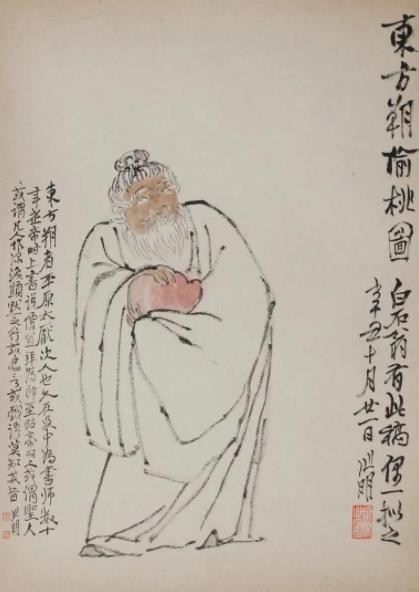 東方朔偷桃圖
白石翁有此稿偶一擬之
辛丑十月廿一日
東方朔者平原太厭次人也久在吳中為書師數十
年武帝時上書說便宜拜為郎至昭帝時人或謂聖人
或謂凡人作深淺顯默之行或忠言或戲語莫知其旨